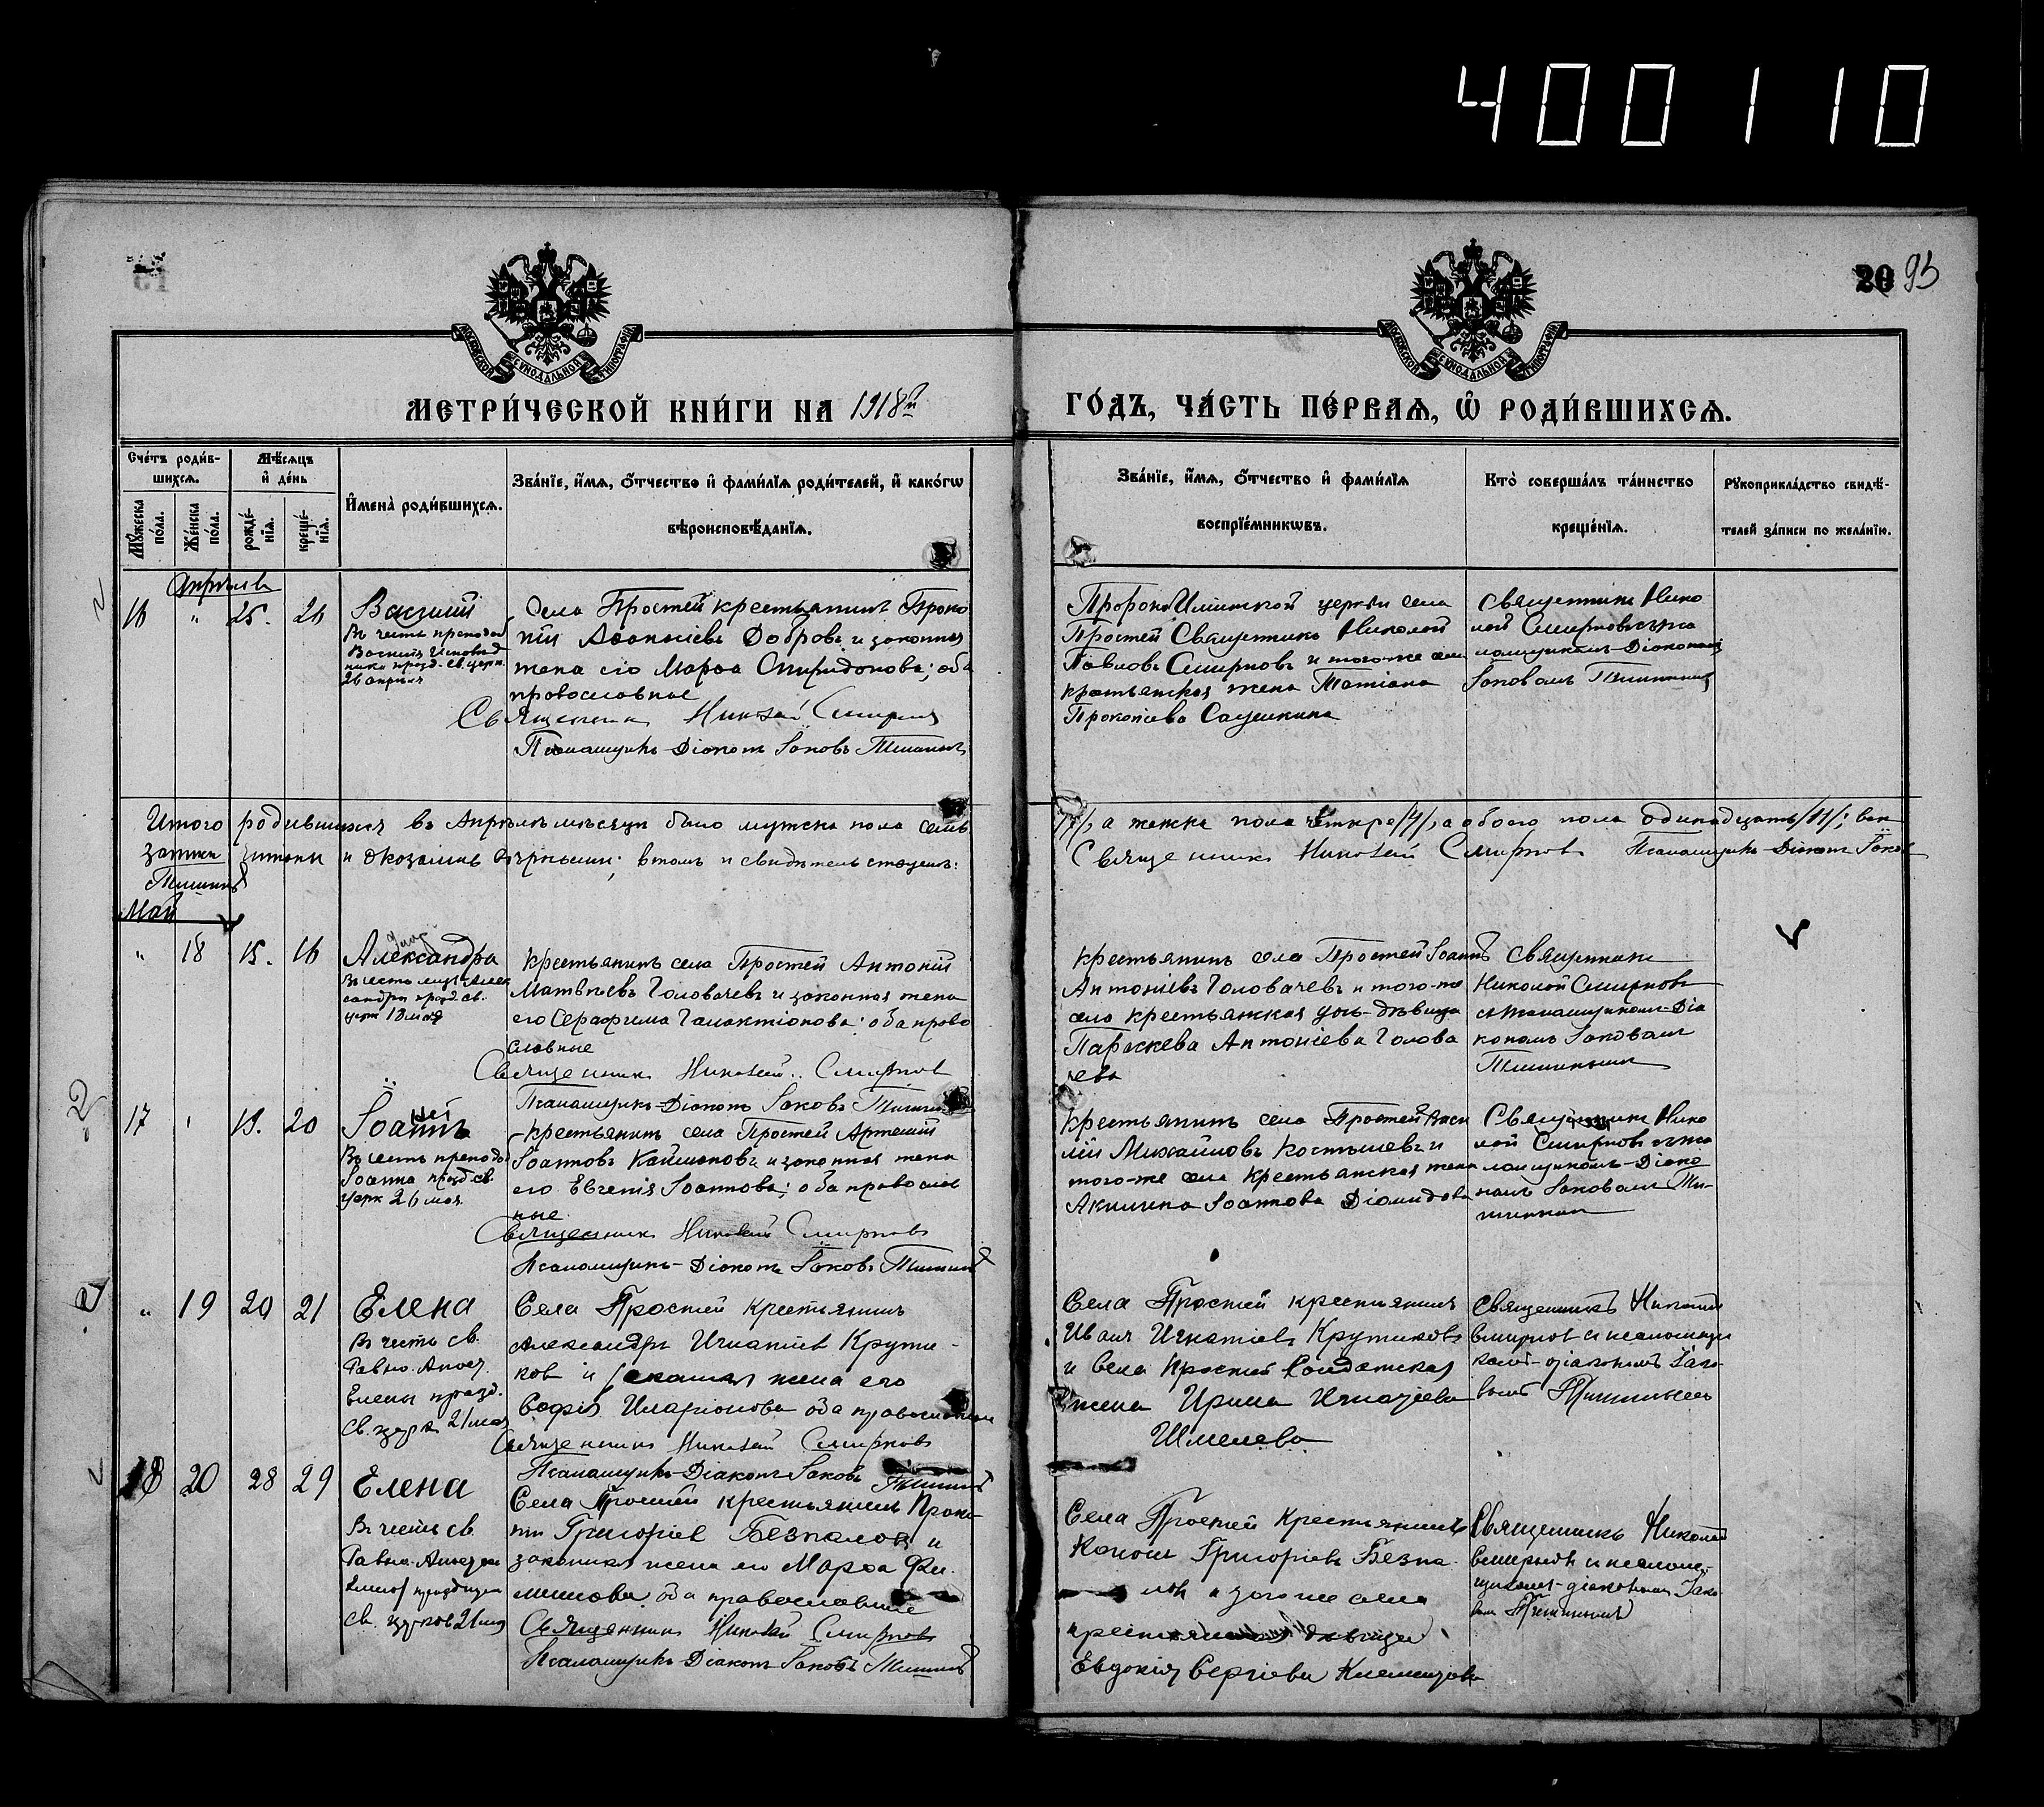 400110
20 93
МОСКОВСКОЙ СѴНОДАЛЬНОЙ ТИПОГРАФІИ
МОСКОВСКОЙ СѴНОДАЛЬНОЙ ТИПОГРАФІИ
МЕТРИ́ЧЕСКОЙ КНИ́ГИ НА 1918й
ГО́ДЪ, ЧА́СТЬ ПЕ́РВАѦ, Ѡ҆ РОДИ́ВШИХСѦ.
Сче́тъ роди́в-
шихсѧ.
Мꙋ́жеска по́ла.
Же́нска по́ла.
Мѣ́сѧцъ
и҆ де́нь
рожде́-
нїѧ.
креще́-
нїѧ.
И҆мена̀ роди́вшихсѧ.
Зва́нїе, и҆́мѧ, ѻ҆́тчество и҆ фамі́лїѧ роди́телей, и҆ како́гѡ
вѣроисповѣ́данїѧ.
Зва́нїе, и҆́мѧ, ѻ҆́тчество и҆ фамі́лїѧ
воспрїе́мникѡвъ.
Кто̀ соверша́лъ та́инство
креще́нїѧ.
Рꙋкоприкла́дство свидѣ́-
телей за́писи по жела́нїю.
Апрѣль
16 " 25. 26
Василій
Въ честь преподоб
Василія Исповѣд
ника празд. св. церк.
26 апрѣля
Села Простей крестьянинъ Проко
пій Аѳонасіевъ Добровъ и законная
жена его Марѳа Спиридонова; оба
православные
Священникъ Николай Смирновъ
Псаломщикъ-Діаконъ Іаковъ Тишинъ
Пророко-Илиинской церкви села
Простей Священникъ Николай
Павловъ Смирновъ и того-же села
крестьянская жена Татіана
Прокопіева Саушкина
Священникъ Нико
лай Смирновъ съ пса
ломщикомъ-Діакономъ
Іаковомъ Тишинымъ
Итого родившихся въ Апрѣлѣ мѣсяцѣ было мужска пола семь
/7/, а женска пола четыре /4/, а обоего пола одинадцать /11/;
Священникъ Николай Смирновъ Псаломщикъ-Діаконъ Іаковъ
Тишинъ
Май
" 18 15. 16
Александра
Въ честь муч. Алек
сандры празд. св.
церк 18 мая
Крестьянинъ села Простей Антоній
Матвѣевъ Головачевъ и законная жена
его Серафима Галактіонова; оба право
славные
Священникъ Николай Смирновъ
Псаломщикъ-Діаконъ Іаковъ Тишинъ
Крестьянинъ села Простей Іоаннъ
Антоніевъ Головачевъ и того-же
села крестьянская дочь-дѣвица
Параскева Антоніева Голова
чева
Священникъ
Николай Смирновъ
съ псаломщикомъ-Діа
кономъ Іаковомъ
Тишинымъ
17 " 19. 20
Іоаннъ
Въ честь преподоб
Іоанна празд св.
церк 26 мая
Крестьянинъ села Простей Артемій
Іоанновъ и законная жена
его Евгенія Іоаннова; оба православ
ные
Священникъ Николай Смирновъ
Псаломщикъ-Діаконъ Іаковъ Тишинъ
Крестьянинъ села Простей Васи
лій Михайловъ Костышевъ и
того-же села крестьянская жена
Акилина Іоаннова Діомидова
Священникъ Нико
лай Смирновъ съ пса
ломщикомъ-Діако
номъ Іаковомъ Ти-
шинымъ
" 19 20 21
Елена
Въ честь св.
Равно-Апост.
Елены празд.
св. церк. 21 мая
Села Простей крестьянинъ
Александръ Игнатіев Крути-
ков и законная жена его
Софія Иларіонова оба православные
Священникъ Николай Смирновъ
Псаломщикъ-Діаконъ Іаковъ Тишинъ
Села Простей крестьянинъ
Иванъ Игнатіевъ Крутиковъ
и села Простей Солдатская
жена Ирина Игнатіева
Шмелева
Священникъ Николай
Смирнов и псаломщи
комъ-діакономъ Іако-
вомъ Тишинымъ
18 20 28 29
Елена
Въ честь св.
Равно-Апостол
Елены празднуем
св. церков 21 мая
Села Простей крестьянинъ Проко-
пій Григоріев Безпалов и
законная жена его Марѳа Фи-
липпова оба православные
Священникъ Николай Смирновъ
Псаломщикъ-Діаконъ Іаковъ Тишинъ
Села Простей Крестьянинъ
Кононъ Григоріевъ Безпа-
лов и того же села
крестьянская дѣвица
Евдокія Сергіева
Священникъ Николай
Смирнов и псалом-
щикомъ-діакономъ Іако-
вом Тишинымъ